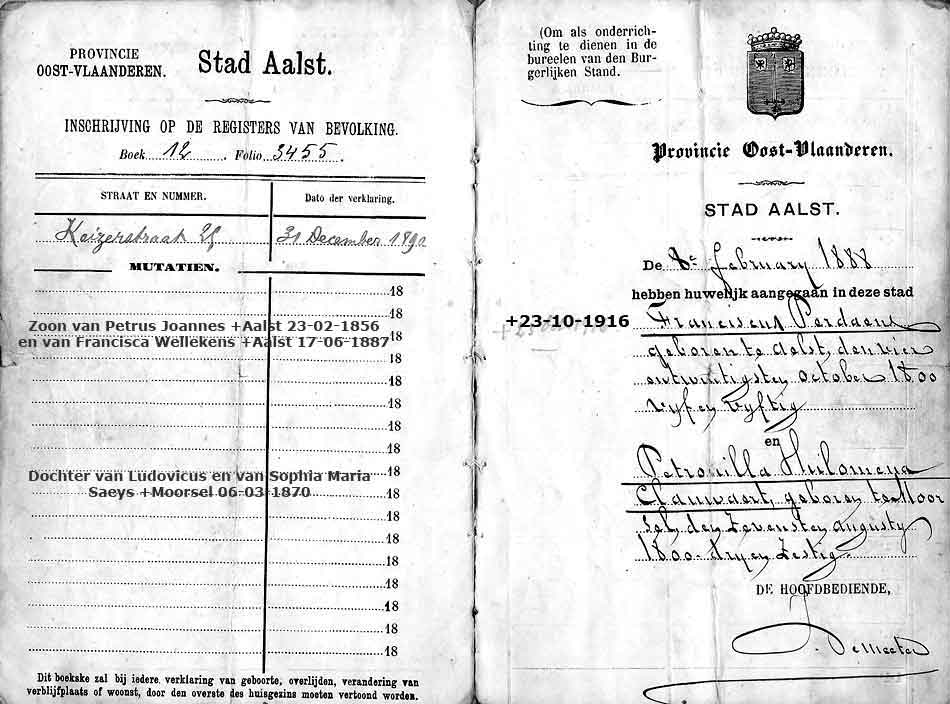 PROVINCIE
OOST-VLAANDEREN.
Stad Aalst.
INSCHRIJVING OP DE REGISTERS VAN BEVOLKING.
Boek 12. Folio 3455.
STRAAT EN NUMMER. Dato der verklaring.
Keizerstraat 31 December 1890
MUTATIEN.
18
18
Zoon van Petrus Joannes +Aalst 23-02-1856
18
en van Francisca Wellekens +Aalst 17-06-1887
18
18
18
18
18
18
Dochter van Ludovicus en van Sophia Maria
18
Saeys +Moorsel 06-03-1870
18
18
18
18
18
18
18
18
Dit boekske zal bij iedere verklaring van geboorte, overlijden, verandering van
verblijfplaats of woonst, door den overste des huisgezins moeten vertoond worden.
(Om als onderrich-
ting te dienen in de
bureelen van den Bur-
gerlijken Stand.
Provincie Oost-Vlaanderen.
STAD AALST.
De 8e february 1888
hebben huwelijk aangegaan in deze stad
+23-10-1916
Franciscus Perdaens
geboren te Aalst, den vier
entwintigsten october 1800
vyf en vyftig
en
Petronilla Philomena
Clauwaert, geboren te Moor
sel, den zevensten augusty
1800 dry en zestig.
DE HOOFDBEDIENDE,
De Meester